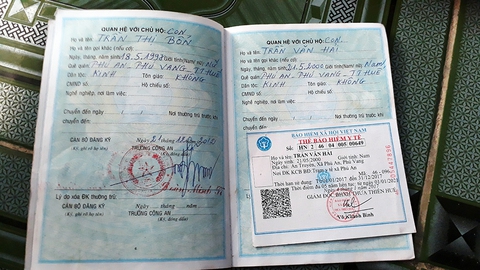 QUAN HỆ VỚI CHỦ HỘ: CON
Họ và tên: TRẦN THỊ BÔN
Họ và tên gọi khác (nếu có):
Ngày, tháng, năm sinh: 18.5.1998 Giới tính: Nữ
Quê quán: PHÚ AN - PHÚ VANG - TT HUẾ
Dân tộc: KINH Tôn giáo: KHÔNG
CMND số: Hộ chiếu số:
Nghề nghiệp, nơi làm việc:
Chuyển đến ngày: Nơi thường trú trước khi
chuyển đến:
Ngày 21 tháng 11 năm
CÁN BỘ ĐĂNG KÝ TRƯỞNG CÔNG AN
(Ký, ghi rõ họ tên)
Lý do xóa ĐK thường trú:
CÁN BỘ ĐĂNG KÝ Ngày tháng năm
(Ký, ghi rõ họ tên) TRƯỞNG CÔNG AN
(Ký, đóng dấu)
QUAN HỆ VỚI CHỦ HỘ: CON
Họ và tên: TRẦN VĂN HAI
Họ và tên gọi khác (nếu có):
Ngày, tháng, năm sinh: 21.5.2000 Giới tính: Nam
Quê quán: PHÚ AN - PHÚ VANG - TT HUẾ
Dân tộc: KINH Tôn giáo: KHÔNG
CMND số: Hộ chiếu số:
Nghề nghiệp, nơi làm việc:
Chuyển đến ngày: Nơi thường trú trước khi
chuyển đến:
BẢO HIỂM XÃ HỘI VIỆT NAM
THẺ BẢO HIỂM Y TẾ
Số: HN 2 46 04 005 00649
Họ và tên: TRẦN VĂN HAI
Ngày sinh: 21/05/2000 Giới tính: Nam
Địa chỉ: An Truyền, Xã Phú An, Phú Vang
Nơi ĐK KCB BĐ: Trạm y tế xã Phú An
Thời hạn sử dụng: Từ 01/01/2017 đến 31/12/2017
Thời điểm đủ 05 năm liên tục: từ
GIÁM ĐỐC BHXH THỪA THIÊN HUẾ
Võ Khánh Bình